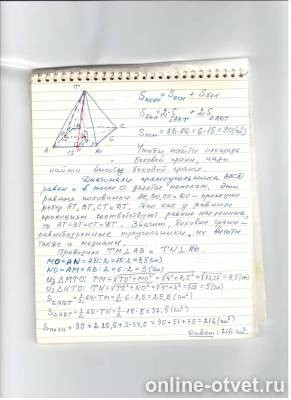 T
Sполн = Sосн + Sбок
Sбок = 2·S + 2S
Sосн = AB·AD = 6·15 = 90 (см²)
Чтобы найти площадь
боковой грани, надо
найти высоты боковой грани.
Диагонали прямоугольника ABCD
равны и в точке O делятся пополам. Эти
равные половинки AO, BO, CO и DO — проекции
рёбер AT, BT, CT и DT. Так как у равных
проекций соответствуют равные наклонные,
то AT = BT = CT = DT. Значит, боковые грани —
равнобедренные треугольники, их высоты
также и медианы.
Проводим TM ⊥ AB и TN ⊥ AD.
MO = AN = AD:2 = 15:2 = 7,5 (см)
NO = AM = AB:2 = 6:2 = 3 (см)
Из △MTO: TM =
Из △NTO: TN = = 5 (см)
S = ½ AB·TM = ½·6·8,5 = 25,5 (см²)
S = ½ AD·TN = ½·15·5 = 37,5 (см²)
Sполн = 90 + 2·25,5 + 2·37,5 = 90 + 51 + 75 = 216 (см²)
Ответ: 216 см².
online-otvet.ru